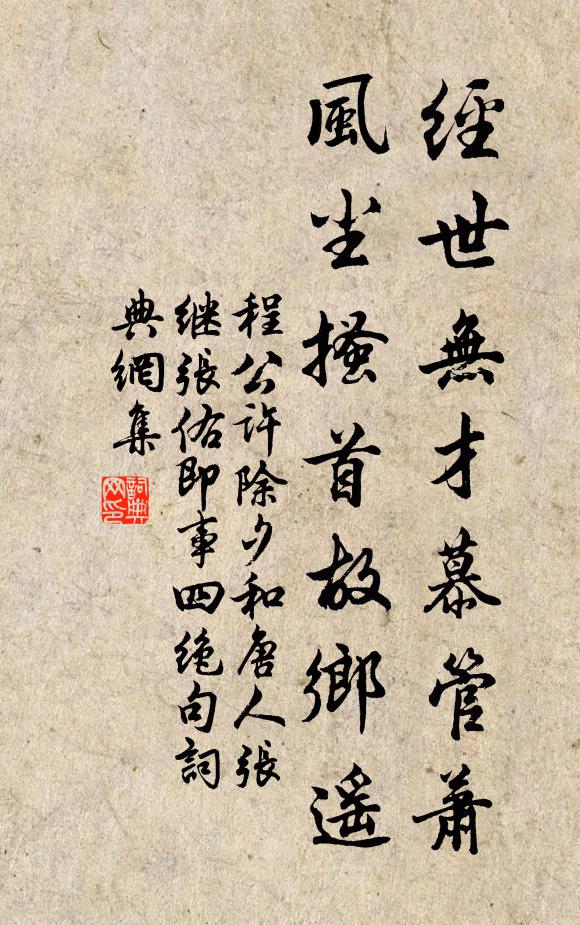 經世無才慕管蕭
風尘搔首故鄉遥
程公許除夕和唐人張
继張佑即事四绝句詞
典網集
詞典
网印